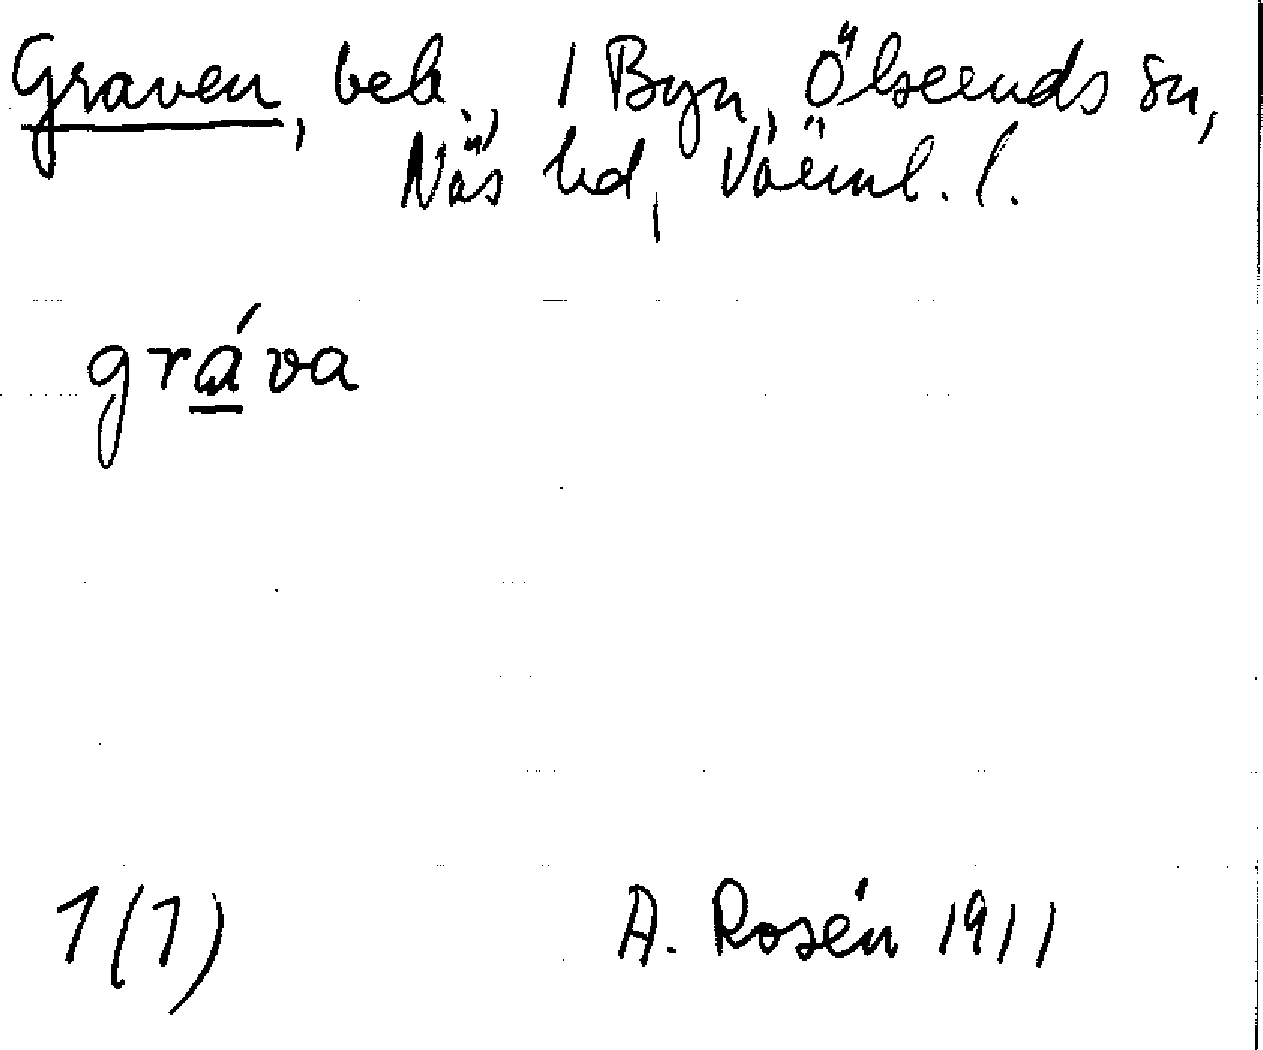 Graven, beb., 1 Byn, Ölseruds sn,
Näs hd, Värml. l.
gráva
1(1)
A. Rosén 1911